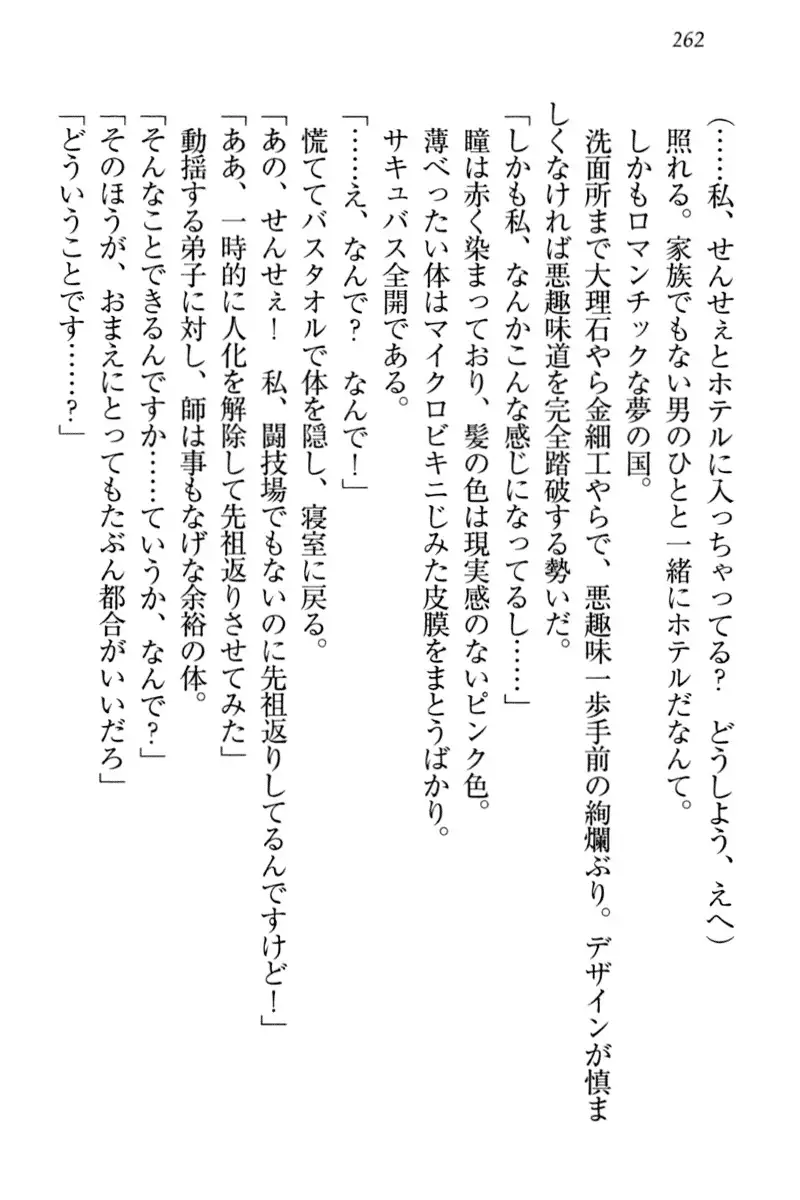 262
(……私、せんせぇとホテルに入っちゃってる?　どうしよう、えへ)
照れる。家族でもない男のひとと一緒にホテルだなんて。
しかもロマンチックな夢の国。
洗面所まで大理石やら金細工やらで、悪趣味一歩手前の絢爛ぶり。デザインが慎ま
しくなければ悪趣味道を完全踏破する勢いだ。
「しかも私、なんかこんな感じになってるし……」
瞳は赤く染まっており、髪の色は現実感のないピンク色。
薄べったい体はマイクロビキニじみた皮膜をまとうばかり。
サキュバス全開である。
「……え、なんで?　なんで!」
慌ててバスタオルで体を隠し、寝室に戻る。
「あの、せんせぇ!　私、闘技場でもないのに先祖返りしてるんですけど!」
「ああ、一時的に人化を解除して先祖返りさせてみた」
動揺する弟子に対し、師は事もなげな余裕の体。
「そんなことできるんですか……ていうか、なんで?」
「そのほうが、おまえにとってもたぶん都合がいいだろ」
「どういうことです……?」